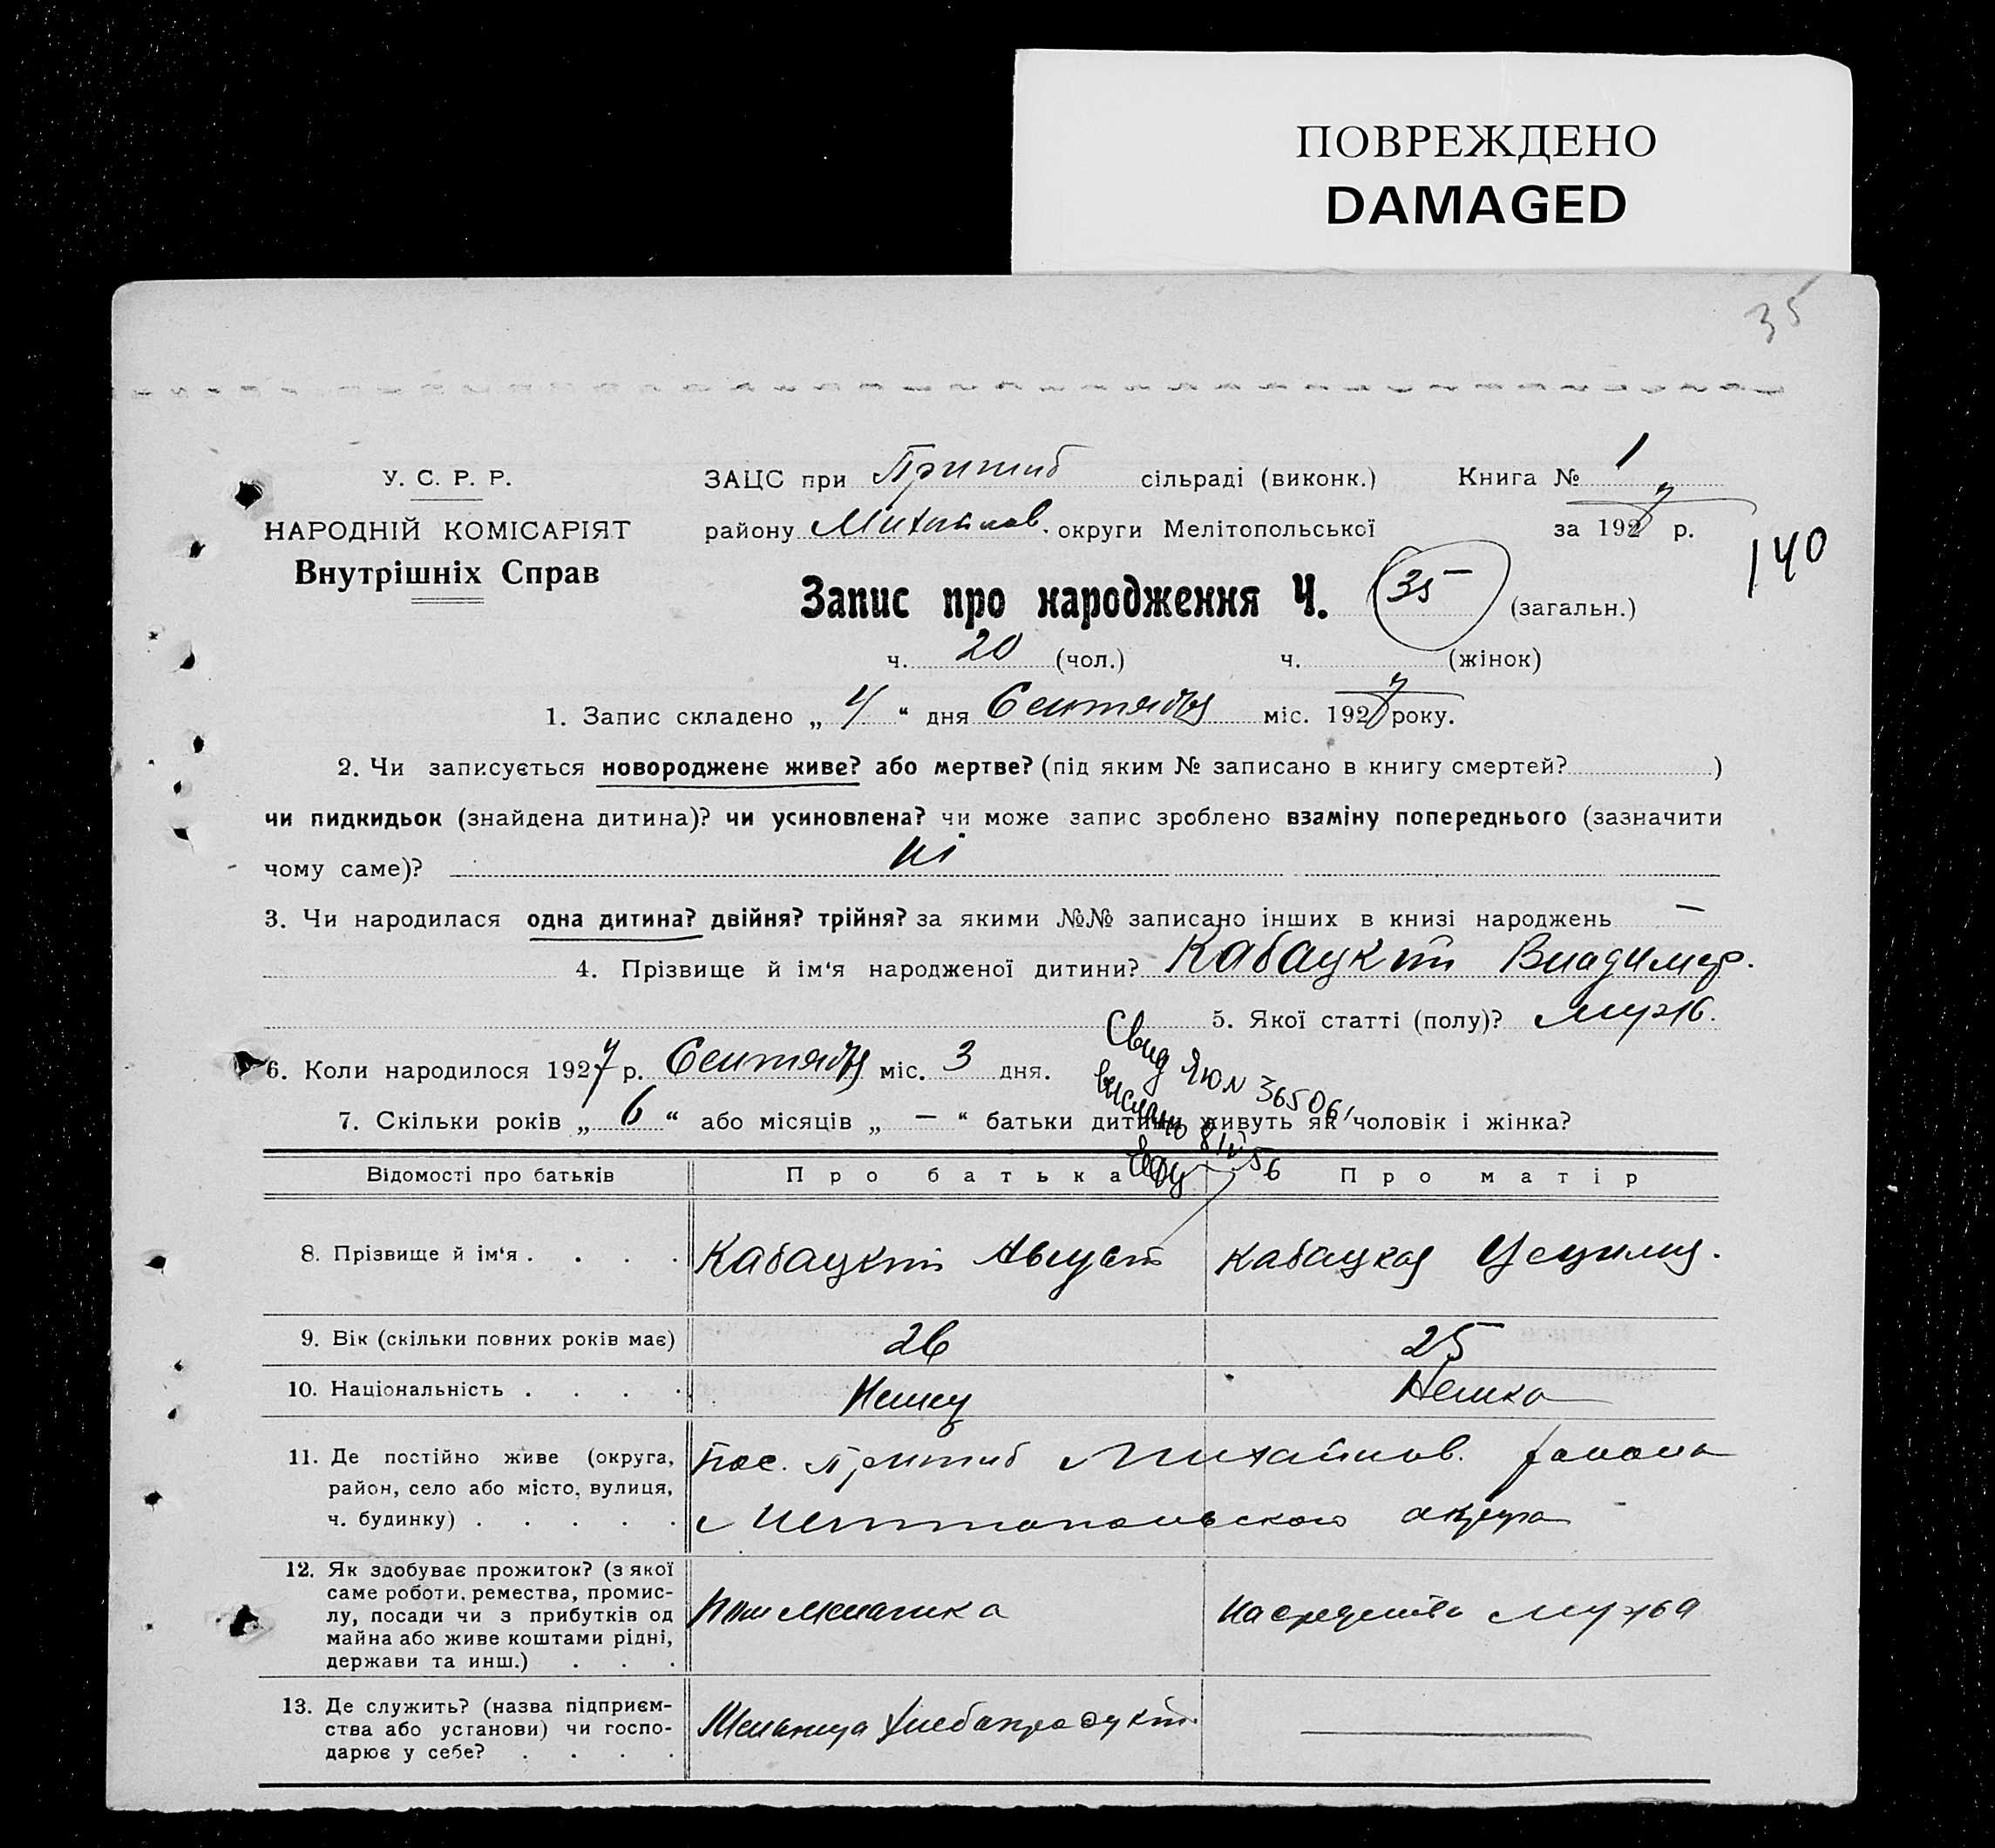 ПОВРЕЖДЕНО
DAMAGED
35
У. С. Р. Р.
НАРОДНІЙ КОМІСАРІЯТ
Внутрішніх Справ
ЗАЦС при Пришиб сільраді (виконк.) Книга № 1
району Михайлов. округи Мелітопольської за 1927 р.
140
Запис про народження Ч. 35 (загальн.)
ч. 20 (чол.) ч. (жінок)
1. Запис складено „ 4 “ дня Сентября міс. 1927 року.
2. Чи записується новороджене живе? або мертве? (під яким № записано в книгу смертей? )
чи пидкидьок (знайдена дитина)? чи усиновлена? чи може запис зроблено взаміну попереднього (зазначити
чому саме)? ні
3. Чи народилася одна дитина? двійня? трійня? за якими №№ записано інших в книзі народжень —
4. Прізвище й ім‘я народженої дитини? Кабацкий Владимер.
5. Якої статті (полу)? мужс.
6. Коли народилося 1927 р. Сентября міс. 3 дня.
Свид ЯЮ № 36506
выслано
7. Скільки років „ 6 “ або місяців „ — “ батьки дитини живуть як чоловік і жінка?
Відомості про батьків Про батька Про матір
8. Прізвище й ім‘я . . . . Кабацкий Август Кабацкая Цецилия.
9. Вік (скільки повних років має) 26 25
10. Національність . . . . Немец Немка
11. Де постійно живе (округа,
район, село або місто, вулиця,
ч. будинку) . . . . .
Пос. Пришиб Михайлов. района
Мелитопольского округа
12. Як здобуває прожиток? (з якої
саме роботи, ремества, промис-
лу, посади чи з прибутків од
майна або живе коштами рідні,
держави та инш.) . . .
На средства мужа
13. Де служить? (назва підприєм-
ства або установи) чи госпо-
дарює у себе? . . . .
Мельница Хлебопродукт. —